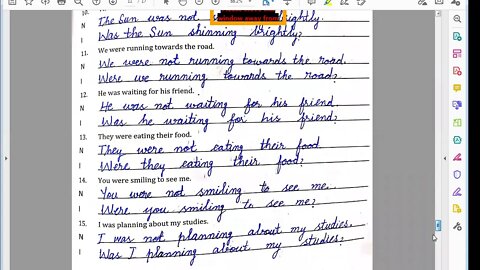 The Sun was not brightly.
Was the Sun shinning brightly?
11. We were running towards the road.
N We were not running towards the road.
I Were we running towards the road?
12. He was waiting for his friend.
N He was not waiting for his friend.
I Was he waiting for his friend?
13. They were eating their food.
N They were not eating their food
I Were they eating their food?
14. You were smiling to see me.
N You were not smiling to see me.
I Were you smiling to see me?
15. I was planning about my studies.
N I was not planning about my studies.
I Was I planning about my studies?